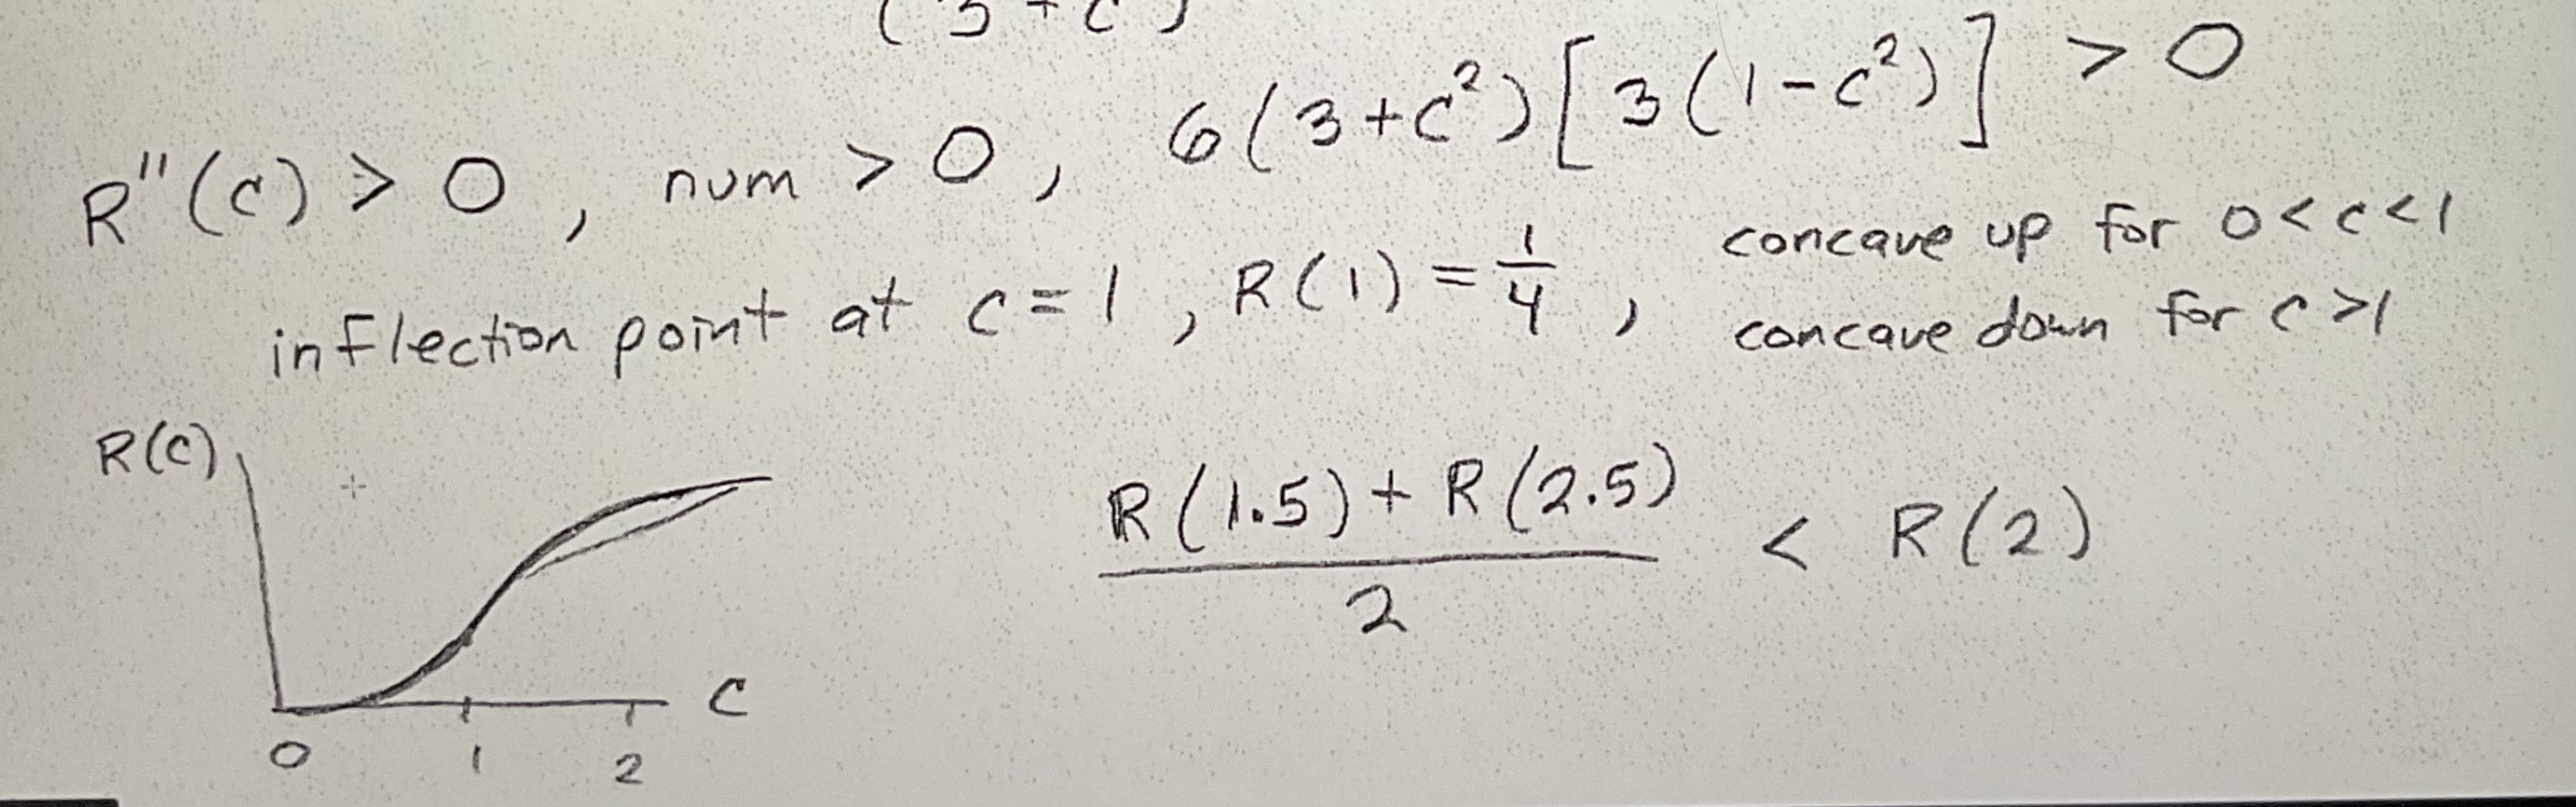 (3+c
6(3+c²)[3(1-c²)] > 0
R"(c) > 0, num > 0,
concave up for 0<c<1
inflection point at c=1, R(1) = 1/4,
concave down for c>1
R(c)
R(1.5) + R(2.5)
2
< R(2)
c
0 1 2